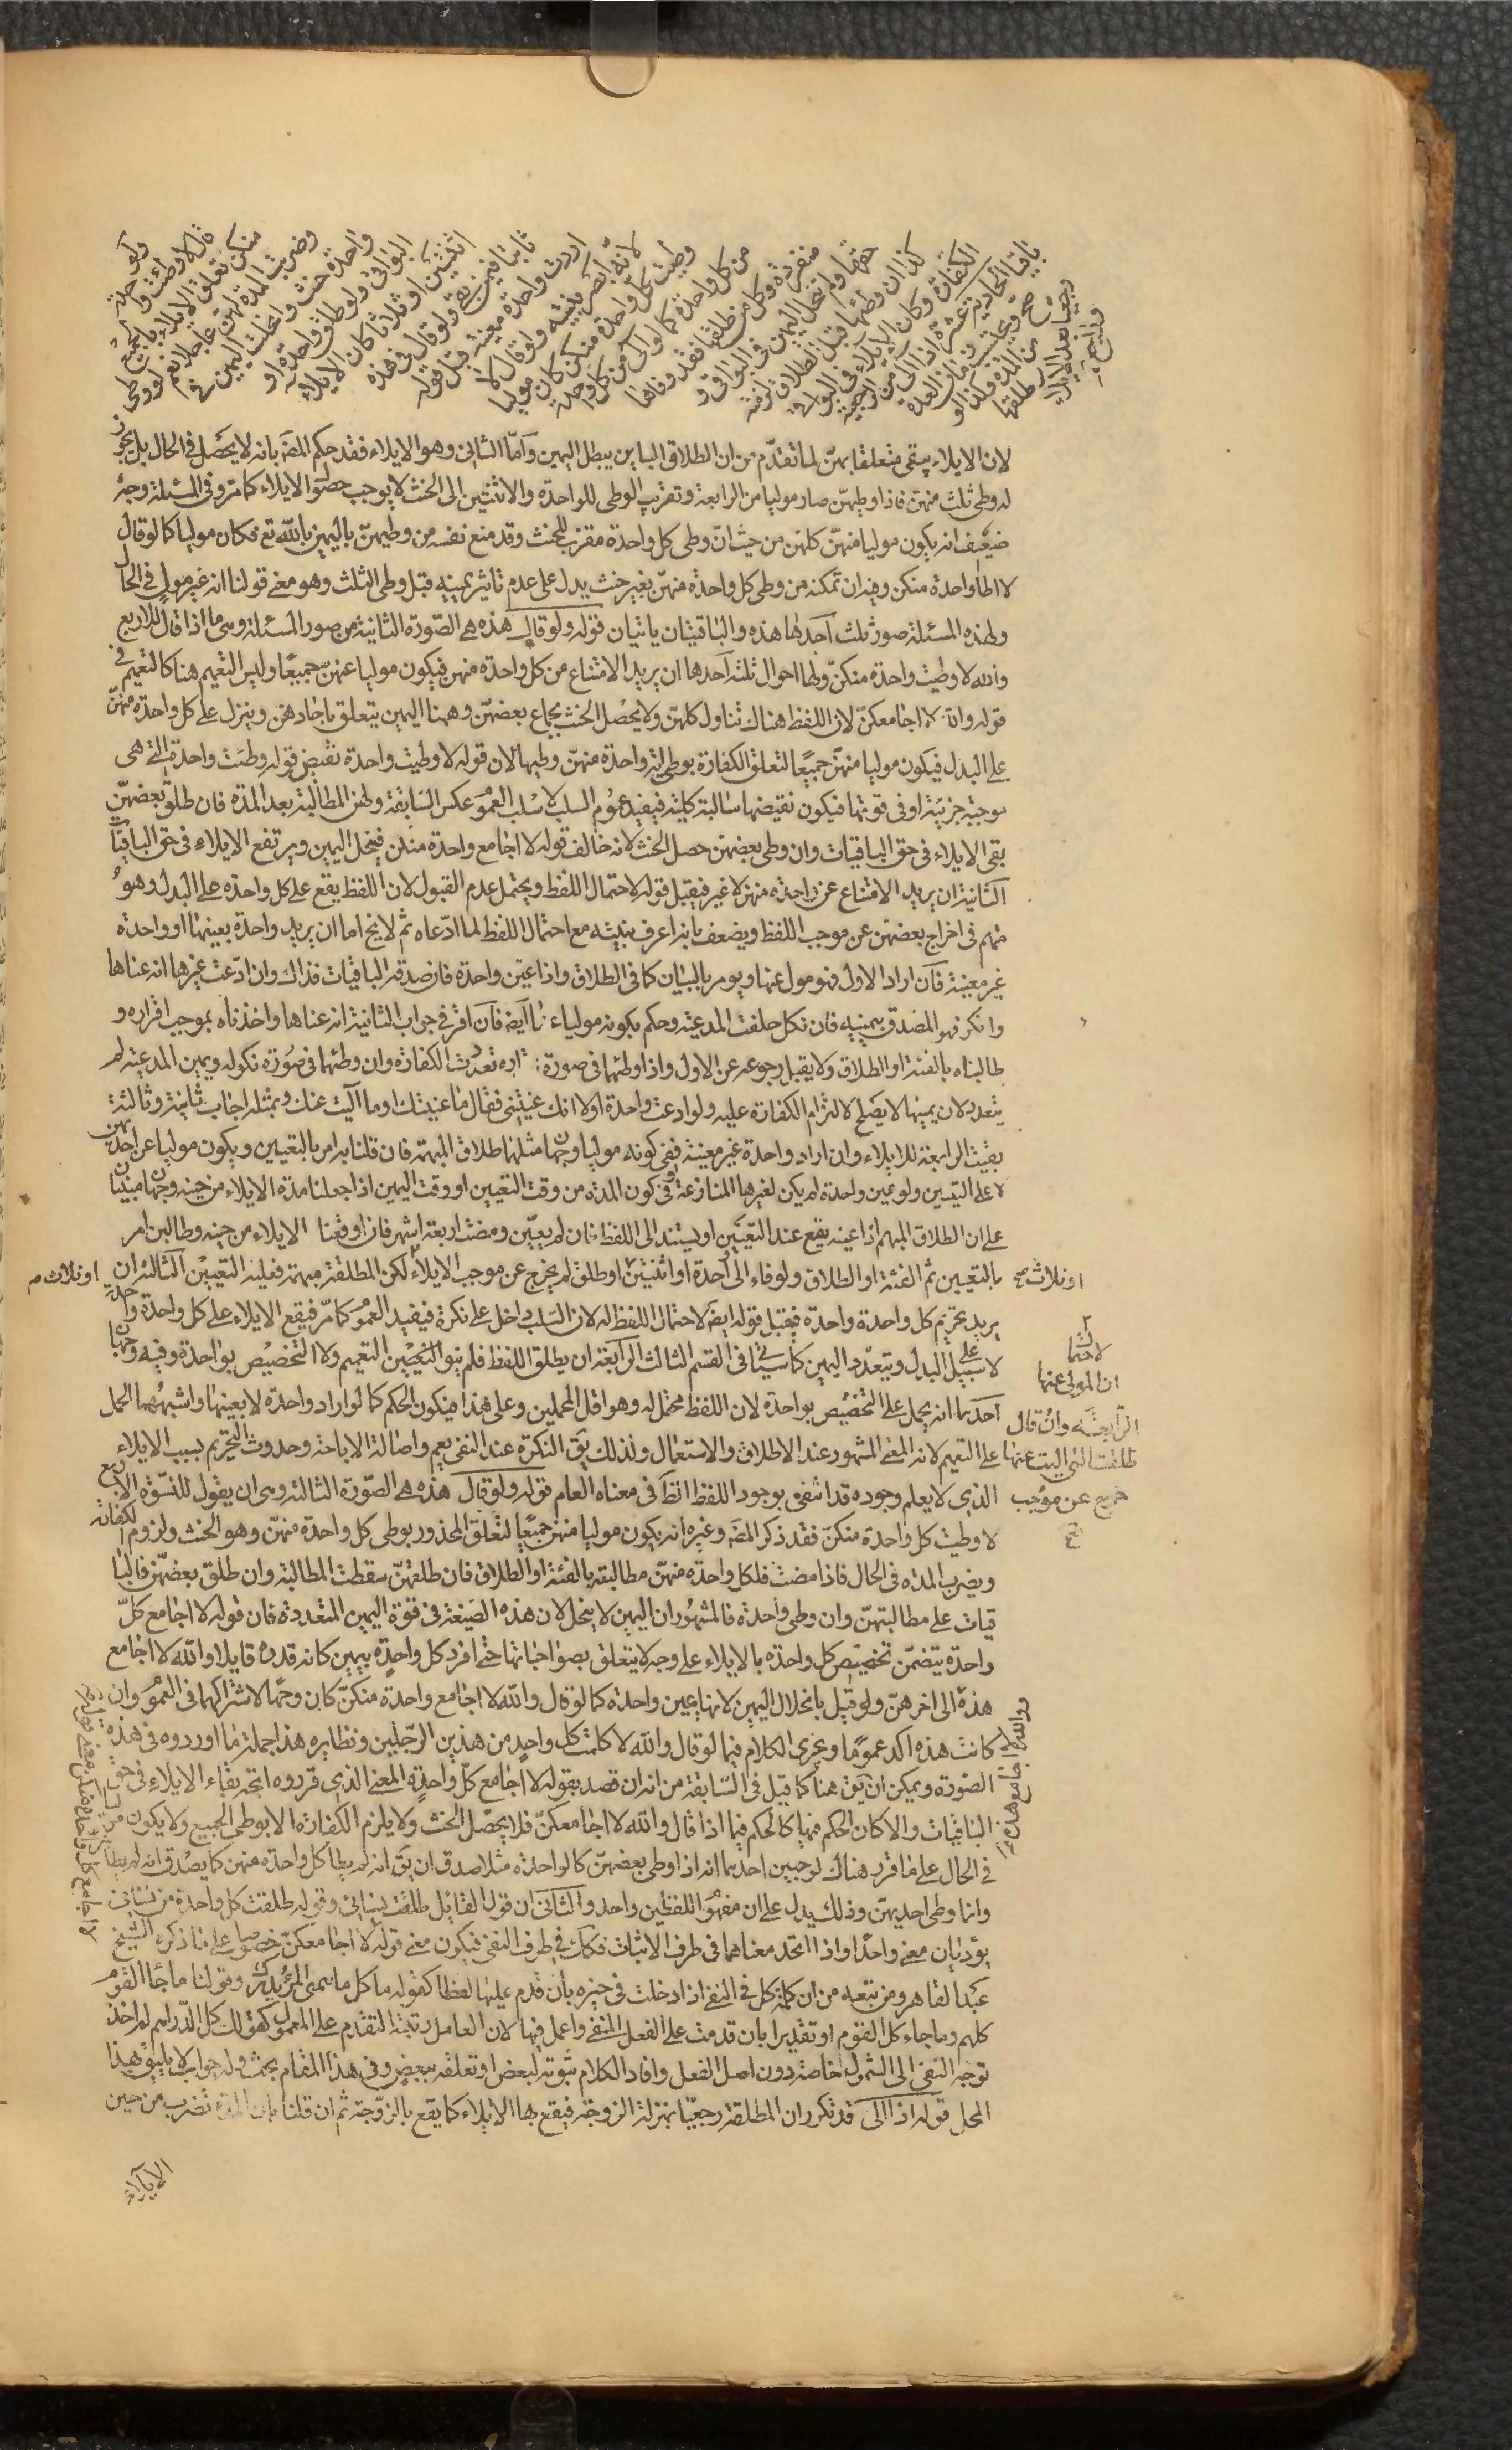 ولو حلف
قال لا وطئت واحدة
منكن تعلق الايلاء بالجميع
وضربت المدة لهن عاجلا نعم لو وطى
واحدة حنث وانحلت اليمين في
البواقى ولو طلق واحدة او
اثنتين او ثلاثا كان الايلاء
ثابتا فيمن بقى ولو قال في هذه
اردت واحدة معينة قبل قوله
لانه ابصر بنيته ولو قال لا
وطئت كل واحدة منكن كان موليا
من كل واحدة كما لو آلى من كل واحدة
منفردة وكل من طلقها فقد وفاها
حقها ولم ينحل اليمين في البواقى و
كذا لو وطئها قبل الطلاق لزمته
الكفارة وكان الايلاء في البواقى
باقيا الحادية عشرة اذا آلى من الرجعية
صح ويحتسب زمان العدة
من المدة وكذا لو طلقها
رجعيا بعد الايلاء
وراجع
لان الايلاء يبقى متعلقا بهن لما تقدم من ان الطلاق الباين يبطل اليمين وامّا الثانى وهو الايلاء فقد حكم المصَ بانه لا يحصل في الحال بل يجوز
له وطى ثلث منهن فاذا وطيهنّ صار موليا من الرابعة وتقريب الوطى للواحدة والاثنتين الى الحنث لا يوجب حصول الايلاء كما مرّ وفى المسئلة وجه
ضعيف انه يكون موليا منهنّ كلهن من حيث انّ وطى كل واحدة مقرب للحنث وقد منع نفسه من وطيهنّ باليمين بالله تع فكان موليا كما لو قال
لا اطأ واحدة منكن وفيه ان تمكنه من وطى كل واحدة منهنّ بغير حنث يدل على عدم تاثير يمينه قبل وطى الثلث وهو معنى قولنا انه غير مول في الحال
ولهذه المسئلة صور ثلث احدها هذه والباقيتان ياتيان قوله ولو قال هذه هي الصّورة الثانية من صور المسئلة وهى ما اذا قال للاربع
والله لا وطيت واحدة منكنّ ولها احوال ثلثه احدها ان يريد الامتناع من كل واحدة منهن فيكون موليا عنهنّ جميعًا وليس التعميم هنا كالتعميم في
قوله والله لا اجامعكنّ لان اللفظ هناك تناول كلهنّ ولا يحصل الحنث بجماع بعضهنّ وههنا اليمين يتعلق باحادهن وينزل على كل واحدة منهنّ
على البدل فيكون موليا منهنّ جميعًا لتعلق الكفارة بوطى اية واحدة منهنّ وطيها لان قوله لا وطيت واحدة نقيض قوله وطئت واحدة التي هى
موجبة جزئية او في قوتها فيكون نقيضها سالبة كلية فيفيد عموم السلب لا سلب العموم عكس السابقة ولهنّ المطالبة بعد المدة فان طلق بعضهنّ
بقى الايلاء في حق الباقيات وان وطى بعضهنّ حصل الحنث لانه خالف قوله لا اجامع واحدة منكن فينحل اليمين ويرتفع الايلاء في حق الباقيات
الثانية ان يريد الامتناع عن واحدة منهن لا غير فيقبل قوله لاحتمال اللفظ ويحتمل عدم القبول لان اللفظ يقع على كل واحدة على البدل وهو
متهم في اخراج بعضهن عن موجب اللفظ ويضعف بانه اعرف بنيته مع احتمال اللفظ لما ادّعاه ثم لا يخ اما ان يريد واحدة بعينها او واحدة
غير معينة فان اراد الاول فهو مول عنها ويومر بالبيان كما في الطلاق واذا عين واحدة فان صدقه الباقيات فذاك وان ادّعت غيرها انه عناها
وانكر فهو المصدق بيمينه فان نكل حلفت المدعية وحكم بكونه موليا عنها ايضَ فان اقر في جواب الثانية انه عناها واخذناه بموجب اقراره و
طالبناه بالفئة او الطلاق ولا يقبل رجوعه عن الاول واذا وطئهما في صورة اقراره تعددت الكفارة وان وطئهما في صورة نكوله ويمين المدعية لم
يتعدد لان يمينها لا يصلح لالتزام الكفارة عليه ولو ادعت واحدة اولا انك عنيتنى فقال ما عنيتك او ما آليت عنك وبمثله اجاب ثانية وثالثة
بقيت الرابعة للايلاء وان اراد واحدة غير معينة ففى كونه موليا وجهان مثلهما طلاق المبهمة فان قلنا به امر بالتعيين ويكون موليا عن احديهن
لا على التعيين ولو عين واحدة لم يكن لغيرها المنازعة وفى كون المدة من وقت التعيين او وقت اليمين اذا جعلنا مدة الايلاء من حينه وجهان مبنيان
على ان الطلاق المبهم اذا عينه يقع عند التعيين او يستند الى اللفظ فان لم يعيّن ومضت اربعة اشهر فان اوقعنا الايلاء من حينه وطالبن امر
بالتعيين ثم الفئة او الطلاق ولو فاء الى واحدة او اثنتين او طلق لم يخرج عن موجب الايلاء لكن المطلقة مبهمة فعليه التعيين الثالثة ان
يريد تحريم كل واحدة واحدة فيقبل قوله ايضَ لاحتمال اللفظ له لان السلب داخل على نكرة فيفيد العموم كما مرّ فيقع الايلاء على كل واحدة واحدة
لا على سبيل البدل ويتعدّد اليمين كما سياتى في القسم الثالث الرابعة ان يطلق اللفظ فلم ينو التعيين التعميم ولا التخصيص بواحدة وفيه وجهان
احدهما انه يحمل على التخصيص بواحدة لان اللفظ محتمل له وهو اقل المحملين وعلى هذا فيكون الحكم كما لو اراد واحدة لا بعينها واشبههما الحمل
على التعميم لانه المعنى المشهور عند الاطلاق والاستعمال ولذلك يقَ النكرة عند النفى يعم واصالة الاباحة وحدوث التحريم بسبب الايلاء
الذى لا يعلم وجوده قد انتفى بوجود اللفظ الظَ في معناه العام قوله ولو قال هذه هى الصّورة الثالثة وهى ان يقول للنسوة الاربع
لا وطيت كل واحدة منكنّ فقد ذكر المصَ وغيره انه يكون موليا منهن جميعًا لتعلق المحذور بوطى كل واحدة منهنّ وهو الحنث ولزوم الكفارة
ويضرب المدة في الحال فاذا مضت فلكل واحدة منهنّ مطالبته بالفئة او الطلاق فان طلقهنّ سقطت المطالبة وان طلق بعضهنّ فالبا
قيات على مطالبتهنّ وان وطى واحدة فالمشهور ان اليمين لا ينحل لان هذه الصّيغة في قوة اليمين المتعددة فان قوله لا اجامع كلّ
واحدة يتضمّن تخصيص كل واحدة بالايلاء على وجه لا يتعلق بصواحباتها حتى افرد كل واحدة بيمين كانه قد قايلا والله لا اجامع
هذه الى اخرهنّ ولو قيل بانحلال اليمين لانها يمين واحدة كما لو قال والله لا اجامع واحدة منكنّ كان وجها لاشتراكهما في العموم وان
كانت هذه اكد عمومًا ويجرى الكلام فيما لو قال والله لا كلمت كل واحد من هذين الرّجلين ونظايره هذا جملة ما اوردوه في هذه
الصّورة ويمكن ان يقَ هنا كما قيل في السّابقة من انه ان قصد بقوله لا اجامع كلّ واحدة المعنى الذى قرروه اتجه بقاء الايلاء في حق
الباقيات والا كان الحكم فيها كالحكم فيما اذا قال والله لا اجامعكنّ فلا يحصل الحنث ولا يلزم الكفارة الا بوطى الجميع ولا يكون موليا
في الحال على ما قرر هناك لوجهين احدهما انه اذا وطى بعضهنّ كالواحدة مثلا صدق ان يقَ انه لم يطأ كل واحدة منهن كما يصدق انه لم يطأهن
وانما وطى احديهنّ وذلك يدل على ان مفهوم اللفظين واحد والثانى ان قول القائل طلقت نسائى وقوله طلقت كل واحدة من نسائى
يؤديان معنى واحدًا واذا اتحد معناهما في طرف الاثبات فكذلك في طرف النفى فيكون معنى قوله لا اجامعكنّ خصوصا على ما ذكره الشيخ
عبد القاهر ومن تبعه من ان كلمة كل في النفى اذا دخلت في حيزه بان قدم عليها لفظا كقوله ما كل ما يتمنى المرء يدركه وقولنا ما جاء القوم
كلهم وما جاء كل القوم او تقديرا بان قدمت على الفعل المنفى واعمل فيها لان العامل رتبته التقدم على المعمول كقولك كل الدّراهم لم اخذ
توجه النفى الى الشمول خاصة دون اصل الفعل وافاد الكلام ثبوته لبعض او تعلقه ببعض وفى هذا المقام بحث وله جواب لا يليق بهذا
المحل قوله اذا آلى قد تكرر ان المطلقة رجعيًا بمنزلة الزوجة فيقع بها الايلاء كما يقع بالزّوجة ثم ان قلنا بان المدة تضرب من حين
او ثلاث صح
او ثلاث م
لاحتمال
ان المولى عنها
الرابعة وان قال
طلقت التى اليت عنها
خرج عن موجب
والله لا اجامع هذه